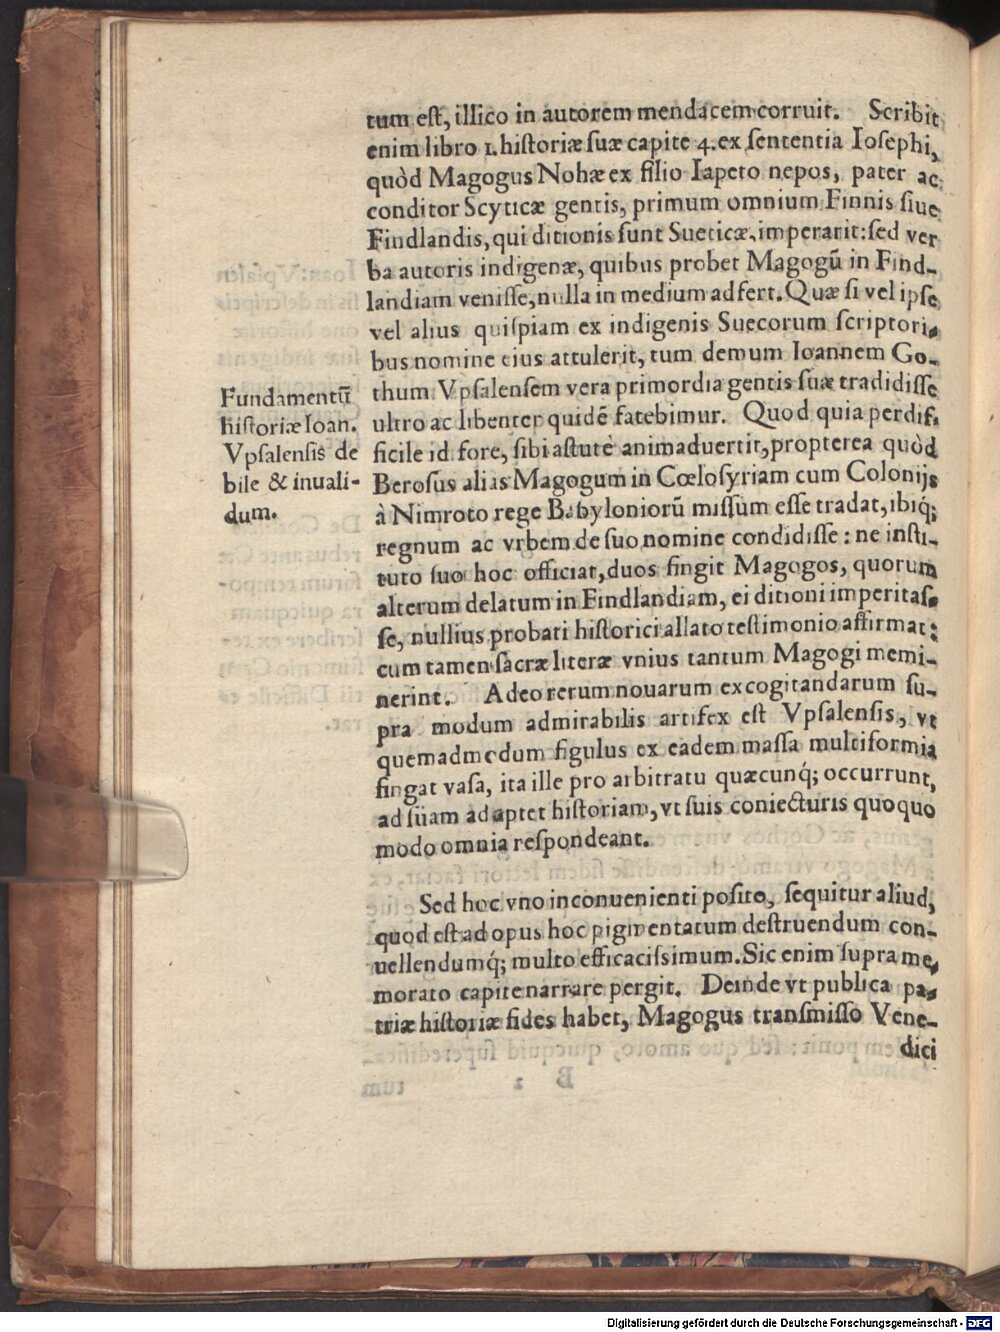 tum eſt, illico in autorem mendacem corruit. Scribit
enim libro 1. hiſtoriæ ſuæ capite 4. ex ſententia Ioſephi,
quòd Magogus Nohæ ex filio Iapeto nepos, pater ac
conditor Scyticæ gentis, primum omnium Finnis ſiue
Findlandis, qui ditionis ſunt Sueticæ, imperarit: ſed ver
ba autoris indigenæ, quibus probet Magogū in Find-
landiam veniſſe, nulla in medium adfert. Quæ ſi vel ipſe
vel alius quiſpiam ex indigenis Suecorum ſcriptori-
bus nomine eius attulerit, tum demum Ioannem Go-
thum Vpſalenſem vera primordia gentis ſuæ tradidiſſe
ultro ac libenter quidē fatebimur. Quod quia perdif-
ficile id fore, ſibi aſtutè animaduertit, propterea quòd
Beroſus alias Magogum in Cœloſyriam cum Colonijs
à Nimroto rege Babyloniorū miſſum eſſe tradat, ibiq́;
regnum ac vrbem de ſuo nomine condidiſſe: ne inſti-
tuto ſuo hoc officiat, duos fingit Magogos, quorum
alterum delatum in Findlandiam, ei ditioni imperitaſ-
ſe, nullius probati hiſtorici allato teſtimonio affirmat:
cum tamen ſacræ literæ vnius tantum Magogi memi-
nerint. Adeo rerum nouarum excogitandarum ſu-
pra modum admirabilis artifex eſt Vpſalenſis, vt
quemadmodum figulus ex eadem maſſa multiformia
fingat vaſa, ita ille pro arbitratu quæcunq́; occurrunt,
ad ſuam adaptet hiſtoriam, vt ſuis coniecturis quoquo
modo omnia reſpondeant.
Fundamentū
hiſtoriæ Ioan.
Vpſalenſis de
bile & inuali-
dum.
Sed hoc vno inconuenienti poſito, ſequitur aliud,
quod eſt ad opus hoc pigmentatum deſtruendum con-
uellendumq́; multo efficaciſsimum. Sic enim ſupra me-
morato capite narrare pergit. Deinde vt publica pa-
triæ hiſtoriæ fides habet, Magogus tranſmiſſo Vene-
dici
Digitalisierung gefördert durch die Deutsche Forschungsgemeinschaft - DFG